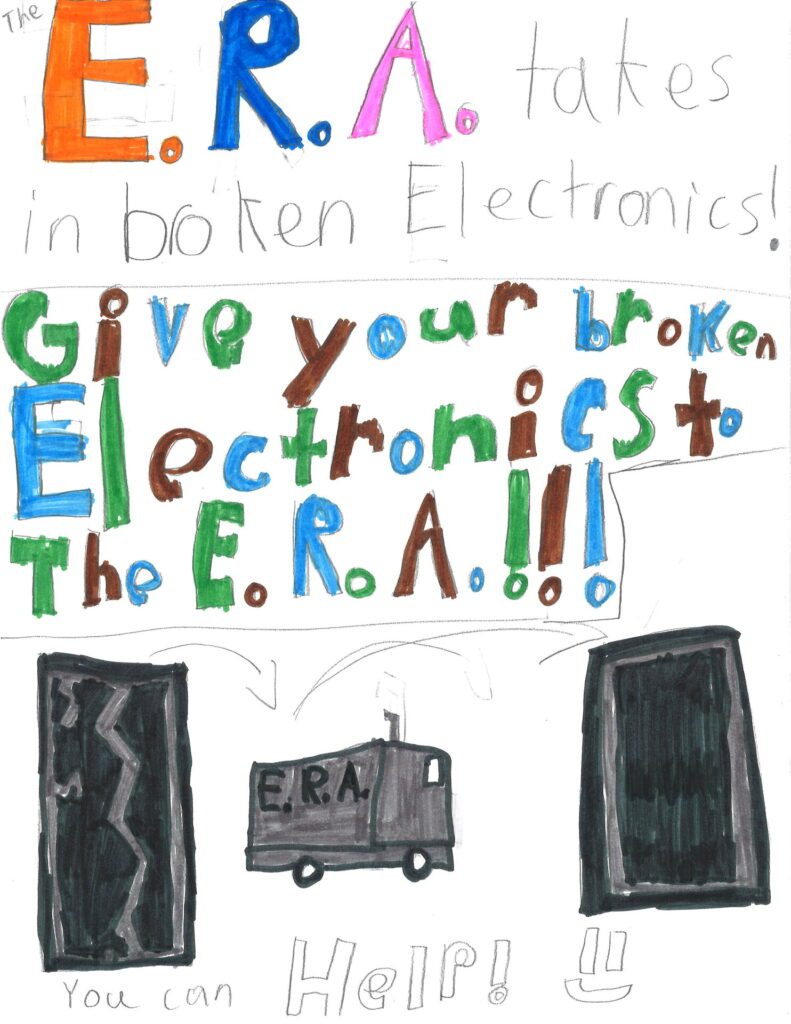 The E.R.A. takes
in broken Electronics!
Give your broken
Electronics to
The E.R.A.!!!
E.R.A.
You can Help!